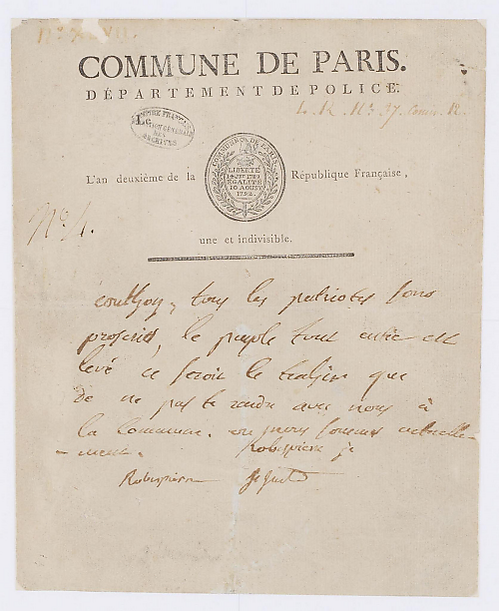 COMMUNE DE PARIS.
DÉPARTEMENT DE POLICE.
Le
EMPIRE FRANÇAIS
DIRECTION GÉNÉRALE
DES
ARCHIVES
COMMUNE DE PARIS
LIBERTÉ
14 JT 1789
EGALITÉ
10 AOUST
1792.
L'an deuxième de la République Française,
No. 4.
une et indivisible.
Couthon, tous les patriotes sont
proscrits, le peuple tout entier est
levé ce seroit le trahir que
de ne pas te rendre avec nous à
la Commune. où nous sommes actuelle-
-ment. Robespierre je
Robespierre St Just